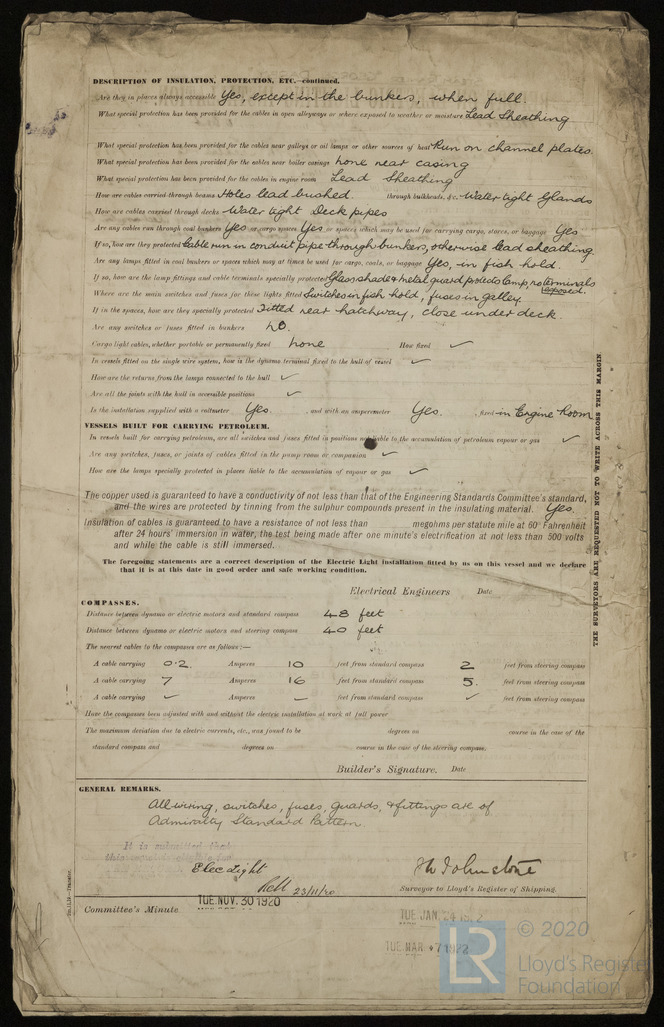 DESCRIPTION OF INSULATION, PROTECTION, ETC.—continued.
Are they in places always accessible Yes, except in the bunkers, when full.
What special protection has been provided for the cables in open alleyways or where exposed to weather or moisture Lead Sheathing
What special protection has been provided for the cables near galleys or oil lamps or other sources of heat Run on channel plates.
What special protection has been provided for the cables near boiler casings none near casing
What special protection has been provided for the cables in engine room Lead Sheathing
How are cables carried through beams Holes lead bushed. through bulkheads, &c. Water tight Glands
How are cables carried through decks Water tight Deck pipes
Are any cables run through coal bunkers Yes or cargo spaces Yes or spaces which may be used for carrying cargo, stores, or baggage Yes
If so, how are they protected Cable run in conduit pipe through bunkers, otherwise lead sheathing.
Are any lamps fitted in coal bunkers or spaces which may at times be used for cargo, coals, or baggage Yes, in fish hold.
If so, how are the lamp fittings and cable terminals specially protected Glass shade & metal guard protects lamp, no terminals exposed.
Where are the main switches and fuses for these lights fitted Switches in fish hold, fuses in galley.
If in the spaces, how are they specially protected Fitted near hatchway, close under deck.
Are any switches or fuses fitted in bunkers no.
Cargo light cables, whether portable or permanently fixed none How fixed ✓
In vessels fitted on the single wire system, how is the dynamo terminal fixed to the hull of vessel ✓
How are the returns from the lamps connected to the hull ✓
Are all the joints with the hull in accessible positions ✓
Is the installation supplied with a voltmeter Yes. and with an amperemeter Yes. , fixed in Engine Room
VESSELS BUILT FOR CARRYING PETROLEUM.
In vessels built for carrying petroleum, are all switches and fuses fitted in positions not liable to the accumulation of petroleum vapour or gas ✓
Are any switches, fuses, or joints of cables fitted in the pump room or companion ✓
How are the lamps specially protected in places liable to the accumulation of vapour or gas ✓
The copper used is guaranteed to have a conductivity of not less than that of the Engineering Standards Committee's standard,
and the wires are protected by tinning from the sulphur compounds present in the insulating material. Yes.
Insulation of cables is guaranteed to have a resistance of not less than megohms per statute mile at 60° Fahrenheit
after 24 hours' immersion in water, the test being made after one minute's electrification at not less than 500 volts
and while the cable is still immersed.
The foregoing statements are a correct description of the Electric Light installation fitted by us on this vessel and we declare
that it is at this date in good order and safe working condition.
Electrical Engineers Date
COMPASSES.
Distance between dynamo or electric motors and standard compass 48 feet
Distance between dynamo or electric motors and steering compass 40 feet
The nearest cables to the compasses are as follows:—
A cable carrying 0.2. Amperes 10 feet from standard compass 2 feet from steering compass
A cable carrying 7 Amperes 16 feet from standard compass 5. feet from steering compass
A cable carrying ✓ Amperes — feet from standard compass ✓ feet from steering compass
Have the compasses been adjusted with and without the electric installation at work at full power
The maximum deviation due to electric currents, etc., was found to be degrees on course in the case of the
standard compass and degrees on course in the case of the steering compass.
Builder's Signature. Date
GENERAL REMARKS.
All wiring, switches, fuses, guards, & fittings are of
Admiralty Standard Pattern.
It is submitted that
Elec Light
23/11/20
Surveyor to Lloyd's Register of Shipping.
Committee's Minute TUE. NOV. 30 1920
TUE. JAN. 24
TUE. MAR. 7 1922
THE SURVEYORS ARE REQUESTED NOT TO WRITE ACROSS THIS MARGIN.
LR
© 2020
Lloyd's Register
Foundation